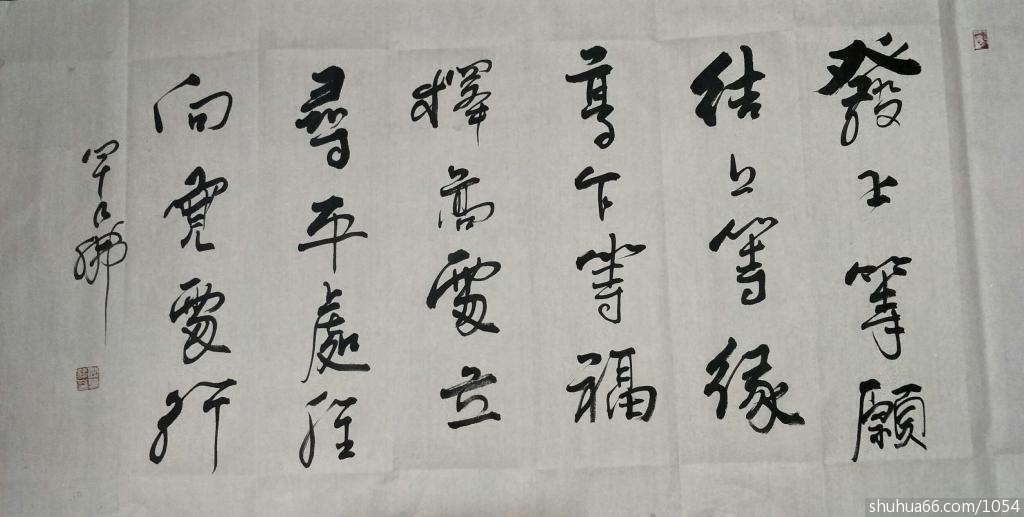 發上等願
結上等緣
享下等福
擇高處立
尋平處住
向寬處行
shuhua66.com/1054